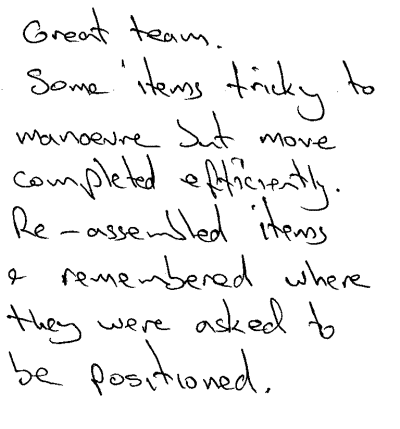 Great team.
Some items tricky to
manoevre but move
completed efficiently.
Re-assembled items
& remembered where
they were asked to
be positioned.